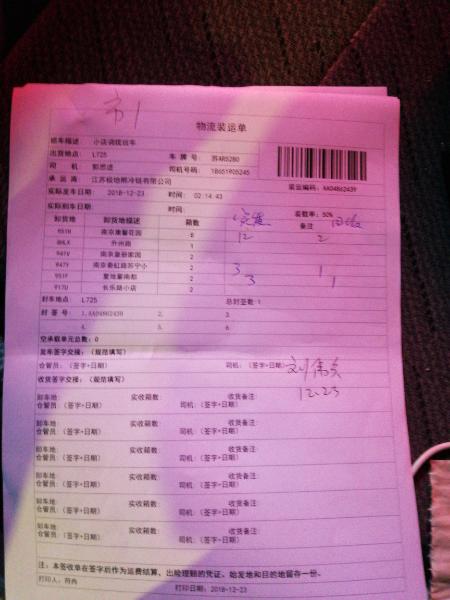 市1
物流装运单
班车描述: 小店调拨班车
出货地点: L725
车 牌 号: 苏AR5280
司 机: 郭思进
司机号码: 18651905245
承 运 商: 江苏极地熊冷链有限公司
装运编码: AA04862439
实际发车日期: 2018-12-23 时间: 02:14:43
实际到车日期: 时间:
装载率: 50%
卸货地 卸货地描述 箱数 备注
951H 南京康馨花园 6 12 2
升州路 1
941V 南京皇册家园 2
947Y 南京秦虹路苏宁小 2 3 1
951F 爱地馨南都 2 3 1
917U 长乐路小店 2
封车地点: L725 总封签数: 1
封 签 号: 1.AA04862439 2. 3.
4. 5. 6.
空承载单元总数: 0
发车签字交接: (规范填写)
仓管员: (签字+日期) 司机: (签字+日期)
12.23
收货签字交接: (规范填写)
卸车地: 实收箱数: 收货备注:
仓管员: (签字+日期) 司机: (签字+日期)
卸车地: 实收箱数: 收货备注:
仓管员: (签字+日期) 司机: (签字+日期)
卸车地: 实收箱数: 收货备注:
仓管员: (签字+日期) 司机: (签字+日期)
卸车地: 实收箱数: 收货备注:
仓管员: (签字+日期) 司机: (签字+日期)
卸车地: 实收箱数: 收货备注:
仓管员: (签字+日期) 司机: (签字+日期)
注: 本签收单在签字后作为运费结算、出险理赔的凭证、始发地和目的地留存一份。
打印人: 符冉 打印日期: 2018-12-23